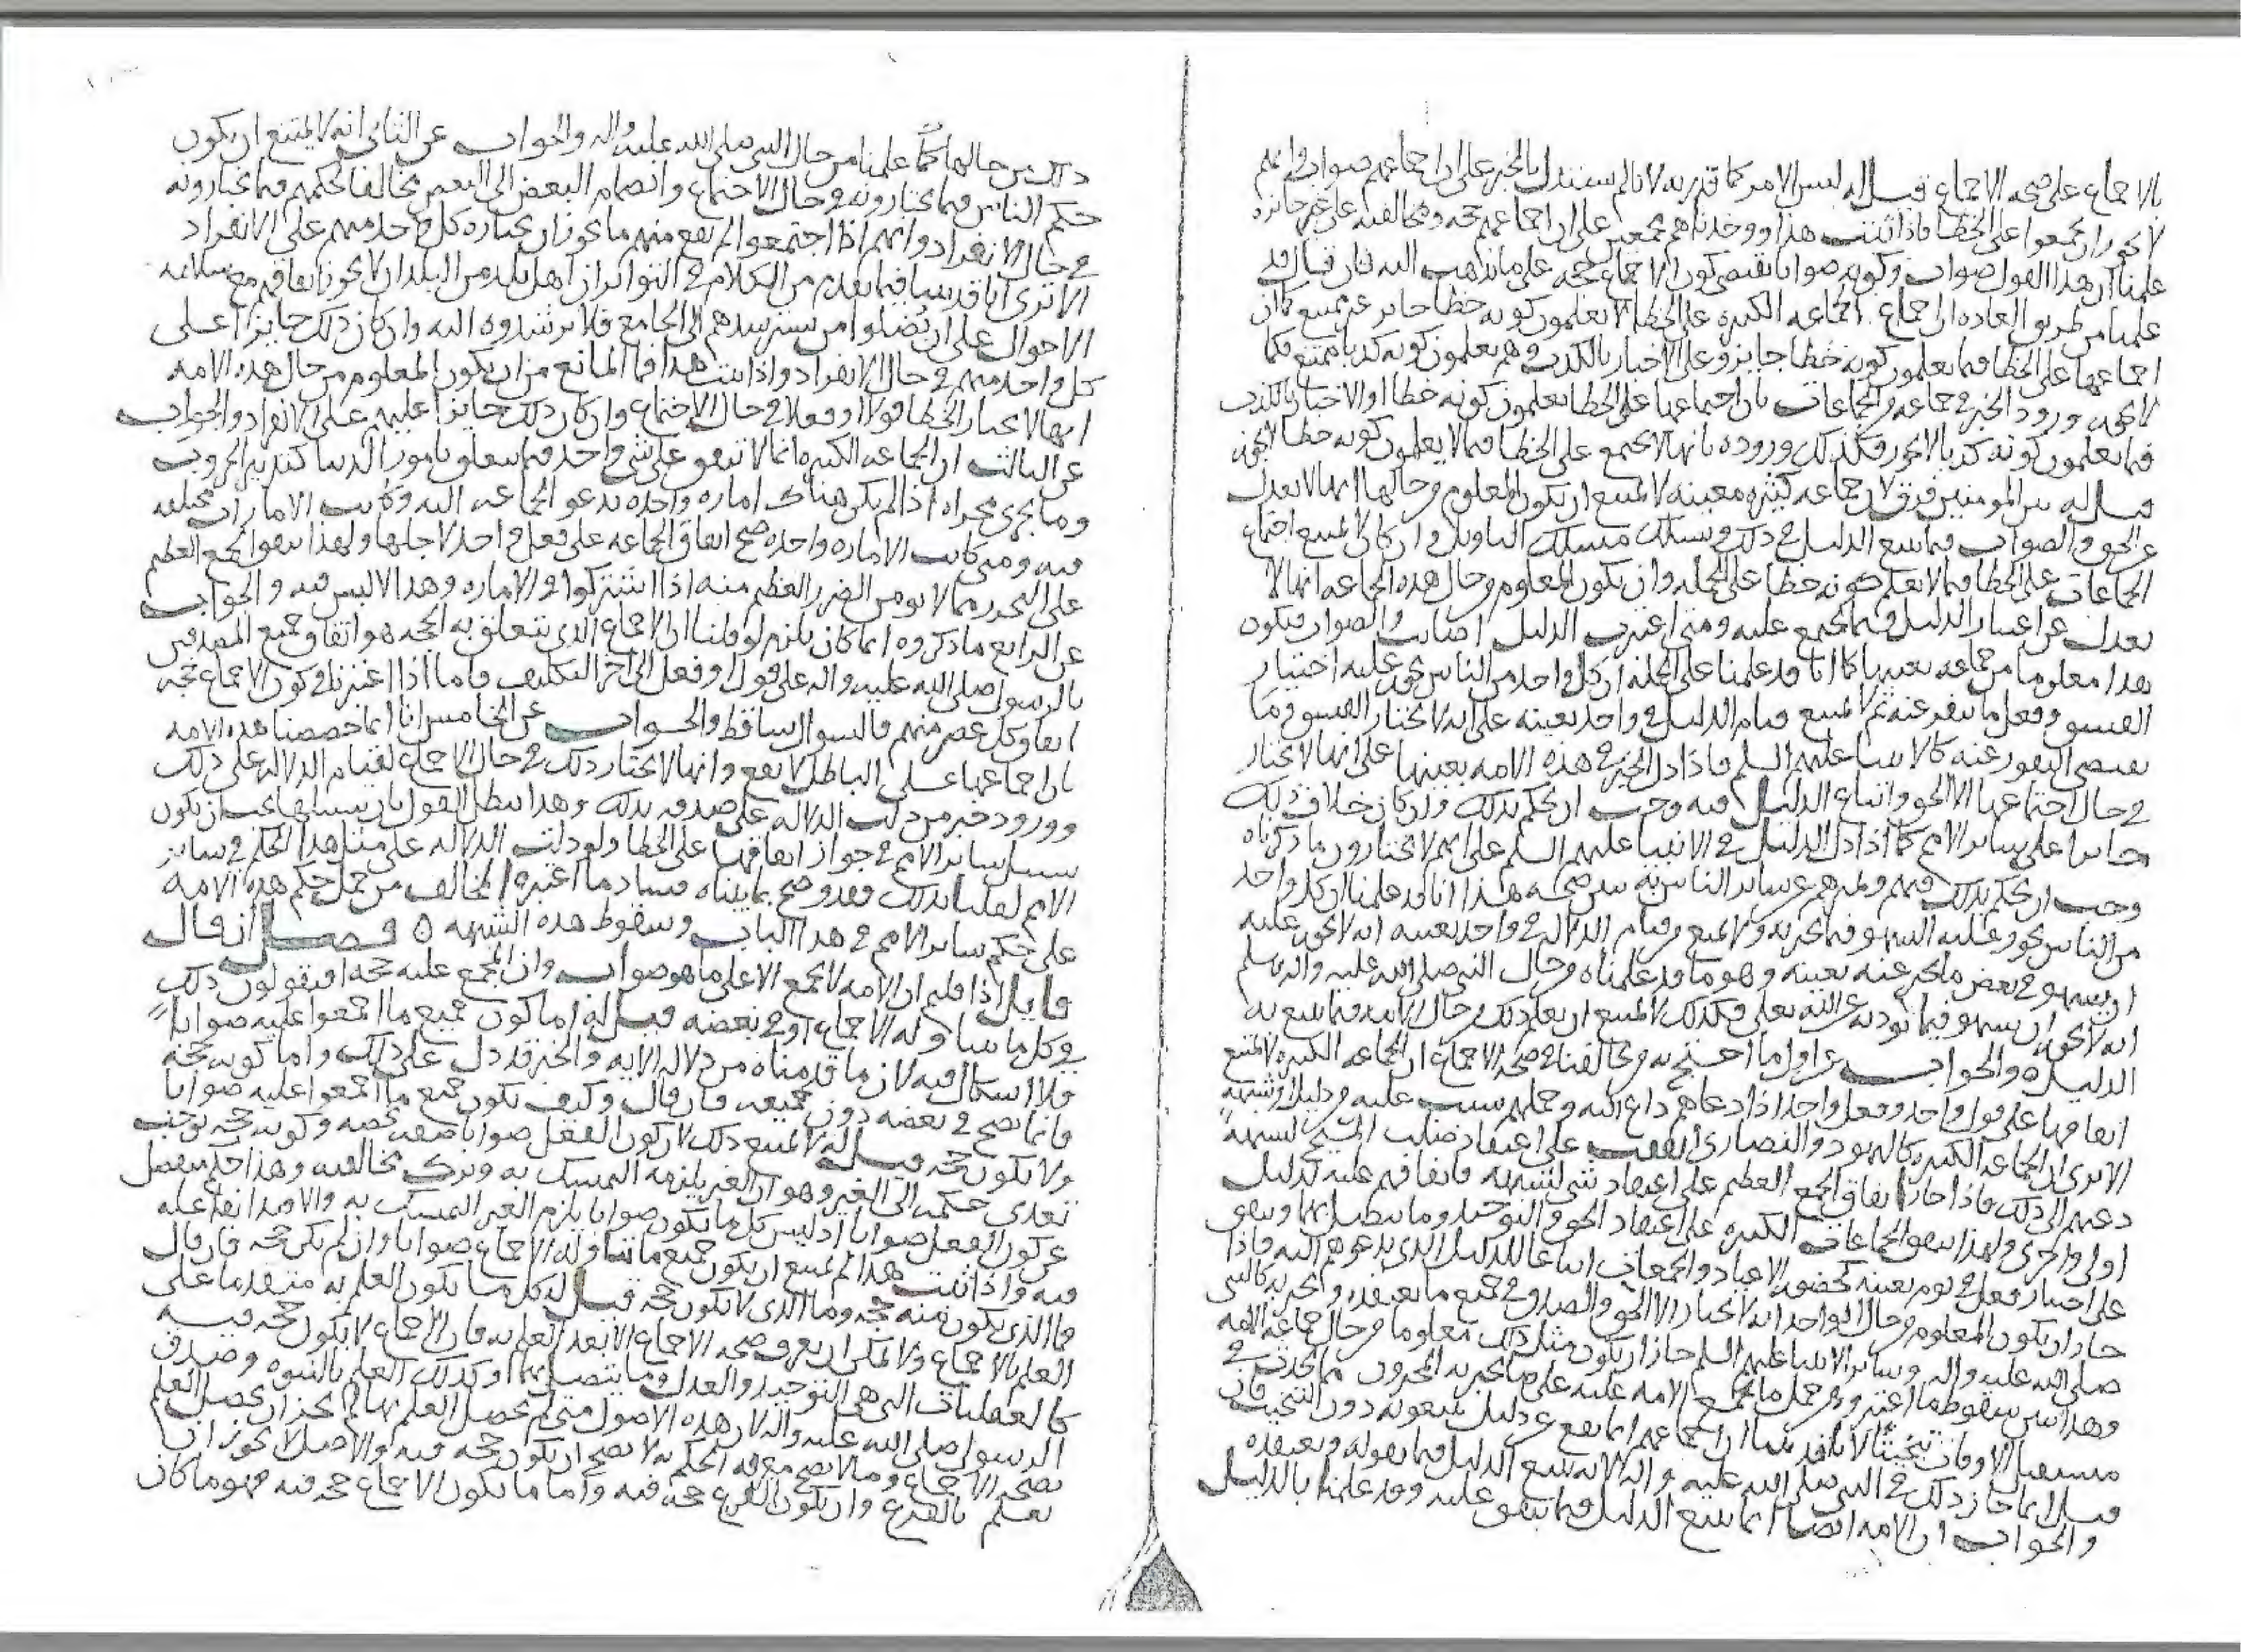 بالاجماع على صحه الاجماع قيل له ليس الامر كما قدر به لانا لم نستدل بالخبر على ان اجماعهم صواب وانهم
لا يجوز ان يجمعوا على الخطا فاذا ثبتت هذا ووجدناهم مجمعين على ان اجماعهم حجه ومخالفته على غير جائزه
علمنا ان هذا القول صواب وكونه صوابا يقتضى كون الاجماع حجه على ما نذهب اليه فان قال قد
علمنا من طريق العاده ان اجماع الجماعه الكبيره على الخطا لا يعلمون كونه خطا جائز غير ممتنع كما ان
اجماعها على الخطا فيما يعلمون كونه خطا جايز وعلى الاخبار بالكذب وهم يعلمون كونه كذبا ممتنع فكما
لا يجوز ورود الخبر في جماعه من الجماعات بان اجتماعها على الخطا يعلمون كونه خطا او الاخبار بالكذب
فيما يعلمون كونه كذبا لا يجوز فكذلك وروده بانها لا تجتمع على الخطا فيما لا يعلمون كونه خطا لا يجوز
قيل له بين الموضعين فرق لان جماعه كثيره معينه لا يمتنع ان يكون المعلوم من حالها انها لا تعدل
عن الحق والصواب فيما تتبع الدليل في ذلك وتسلك مسلك التاويل وان كان لا يمتنع اجتماع
الجماعات على الخطا فيما لا تعلم كونه خطا على الجمله وان يكون المعلوم من حال هذه الجماعه انها لا
تعدل عن اعتبار الدليل فيما تجتمع عليه ومتى اعتبرت الدليل اصابت والصواب فيكون
هذا معلوما من جماعه بعينها كما انا قد علمنا على الجمله ان كل واحد من الناس يجوز عليه اختيار
الفسق وفعل ما ينفر عنه ثم لا يمتنع قيام الدليل في واحد بعينه على انه لا يختار الفسق وما
يقتضى النفور عنه كالانبيا عليهم السلم فاذا دل الخبر في هذه الامه بعينها على انها لا تختار
في حال اجتماعها الا الحق واتباع الدليل فيه وجب ان نحكم بذلك وان كان خلاف ذلك
جايزا على ساير الامم كما اذا دل الدليل في الانبيا عليهم السلم على انهم لا يختارون ما ذكرناه
وجب ان نحكم بذلك فيهم ونميزهم عن ساير الناس به يبين صحه هذا انا قد علمنا ان كل واحد
من الناس يجوز عليه السهو فيما يخبر به ولا يمتنع من قيام الدلاله في واحد بعينه انه لا يجوز عليه
ان يسهو في بعض ما يخبر عنه بعينه وهو ما قد علمناه من حال النبي صلى الله عليه واله وسلم
انه لا يجوز ان يسهو فيما يوديه عن الله تعلى فكذلك لا يمتنع ان يعلم ذلك من حال الامه فيما تتبع به
الدليل والجواب عن اول ما احتج به من خالفنا في صحه الاجماع ان الجماعه الكبيره لا يمتنع
اتفاقها على قول واحد وفعل واحد اذا دعاهم داع اليه وحملهم سبب عليه من دليل او شبهه
الا ترى ان الجماعه الكبيره كاليهود والنصارى اتفقت على اعتقاد صلب المسيح لشبهه
دعتهم الى ذلك فاذا جاز اتفاق الجمع العظيم على اعتقاد شى لشبهه فاتفاقهم عليه لدليل
اولى واحرى ولهذا تتفق الجماعات الكبيره على اعتقاد الحق في التوحيد وما يتصل بها وتتفق
على اختيار فعل في يوم بعينه كحضور الاعياد والجمعات اتباعا للدليل الذى يدعوهم اليه فاذا
جاز ان يكون المعلوم من حال الواحد انه لا يختار الا الحق والصدق في جميع ما يعتقده ويخبر به كالنبي
صلى الله عليه واله وساير الانبيا عليهم السلم جاز ان يكون مثل ذلك معلوما من حال جماعه الامه
وهذا يبين سقوط ما اعترض من حمل ما تجمع الامه عليه على ما يخبر به المخبرون مما يحدث في
مستقبل الاوقات تبخيتا لانا قد بينا ان اجماعهم انما يقع عن دليل يتبعونه دون التبخيت فان
قيل انما جاز ذلك في النبي صلى الله عليه واله لانه يتبع الدليل فيما يقوله ويعتقده
والجواب ان الامه ايضا انما تتبع الدليل فيما تتفق عليه وقد علمنا بالدليل
ذلك من حالها كما علمنا من حال النبي صلى الله عليه واله والجواب عن الثاني انه لا يمتنع ان يكون
حكم الناس فيما يختارونه في حال الاجتماع وانضمام البعض الى البعض مخالفا لحكمهم فيما يختارونه
في حال الانفراد وانهم اذا اجتمعوا لم يقع منهم ما يجوز ان يختاره كل واحد منهم على الانفراد
الا ترى انا قد بينا فيما تقدم من الكلام في التواتر ان اهل بلد من البلدان لا يجوز اتفاقهم مع سلامه
الاحوال على ان يضلوا من يسترشدهم الى الجامع فلا يرشدوه اليه وان كان ذلك جايزا على
كل واحد منهم في حال الانفراد واذا ثبت هذا فما المانع من ان يكون المعلوم من حال هذه الامه
انها لا تختار الخطا قولا وفعلا في حال الاجتماع وان كان ذلك جايزا عليهم على الانفراد والجواب
عن الثالث ان الجماعه الكبيره انما لا تتفق على شى واحد فيما يتعلق بامور الدنيا كتدبير الحروب
وما يجرى مجراه اذا لم يكن هناك اماره واحده تدعو الجماعه اليه وكانت الامارات مختلفه
فيه ومتى كانت الاماره واحده صح اتفاق الجماعه على فعل واحد لاجلها ولهذا يتفق الجمع العظيم
على التحرز مما لا يومن الضرر العظيم منه اذا اشتركوا في الاماره وهذا لا لبس فيه والجواب
عن الرابع ما ذكروه انما كان يلزم لو قلنا ان الاجماع الذى تتعلق به الحجه هو اتفاق جميع المصدقين
بالرسول صلى الله عليه واله على قول او فعل الى اخر التكليف فاما اذا اعتبرنا في كون الاجماع حجه
اتفاق كل عصر منهم فالسوال ساقط والجواب عن الخامس انا انما خصصنا هذه الامه
بان اجماعها على الباطل لا يقع وانها لا تختار ذلك في حال الاجماع لقيام الدلاله على ذلك
وورود خبر من دلت الدلاله على صدقه بذلك وهذا يبطل القول بان سبيلها يجب ان يكون
سبيل ساير الامم في جواز اتفاقها على الخطا ولو دلت الدلاله على مثل هذا الحكم في ساير
الامم لقلنا بذلك فقد وضح بما بيناه فساد ما اعتبره المخالف من حمل حكم هذه الامه
على حكم ساير الامم في هذا الباب وسقوط هذه الشبهه ٥ فصل ان قال
قايل اذا قلتم ان الامه لا تجمع الا على ما هو صواب وان المجمع عليه حجه افتقولون ذلك
في كل ما تناوله الاجماع او في بعضه قيل له اما كون جميع ما اجمعوا عليه صوابا
فلا اشكال فيه لان ما قدمناه من دلاله الايه والخبر قد دل على ذلك واما كونه حجه
فانما يصح في بعضه دون جميعه فان قال وكيف يكون جميع ما اجمعوا عليه صوابا
ولا يكون حجه قيل له لا يمتنع ذلك لان كون الفعل صوابا صفه تخصه وكونه حجه يوجب
تعدى حكمه الى الغير وهو ان الغير يلزمه التمسك به وترك مخالفته وهذا حكم منفصل
عن كون الفعل صوابا اذ ليس كل ما يكون صوابا يلزم الغير التمسك به والاقتدا بفاعله
فيه واذا ثبت هذا لم يمتنع ان يكون جميع ما تناوله الاجماع صوابا وان لم يكن حجه فان قال
فما الذى يكون منه حجه وما الذى لا يكون حجه قيل له كل ما يكون العلم به متقدما على
العلم بالاجماع ولا يمكن ان يعرف صحه الاجماع الا بعد العلم به فان الاجماع لا يكون حجه فيه
كالعقليات التي هى التوحيد والعدل وما يتصل بهما وكذلك العلم بالنبوه وصدق
الرسول صلى الله عليه واله لان هذه الاصول متى لم يحصل العلم بها لم يجز ان يحصل العلم
بصحه الاجماع وما لا يصح معرفه الحكم به لا يصح ان يكون حجه فيه والاصل لا يجوز ان
يعلم بالفرع وان يكون الفرع حجه فيه واما ما يكون الاجماع حجه فيه فهو ما كان